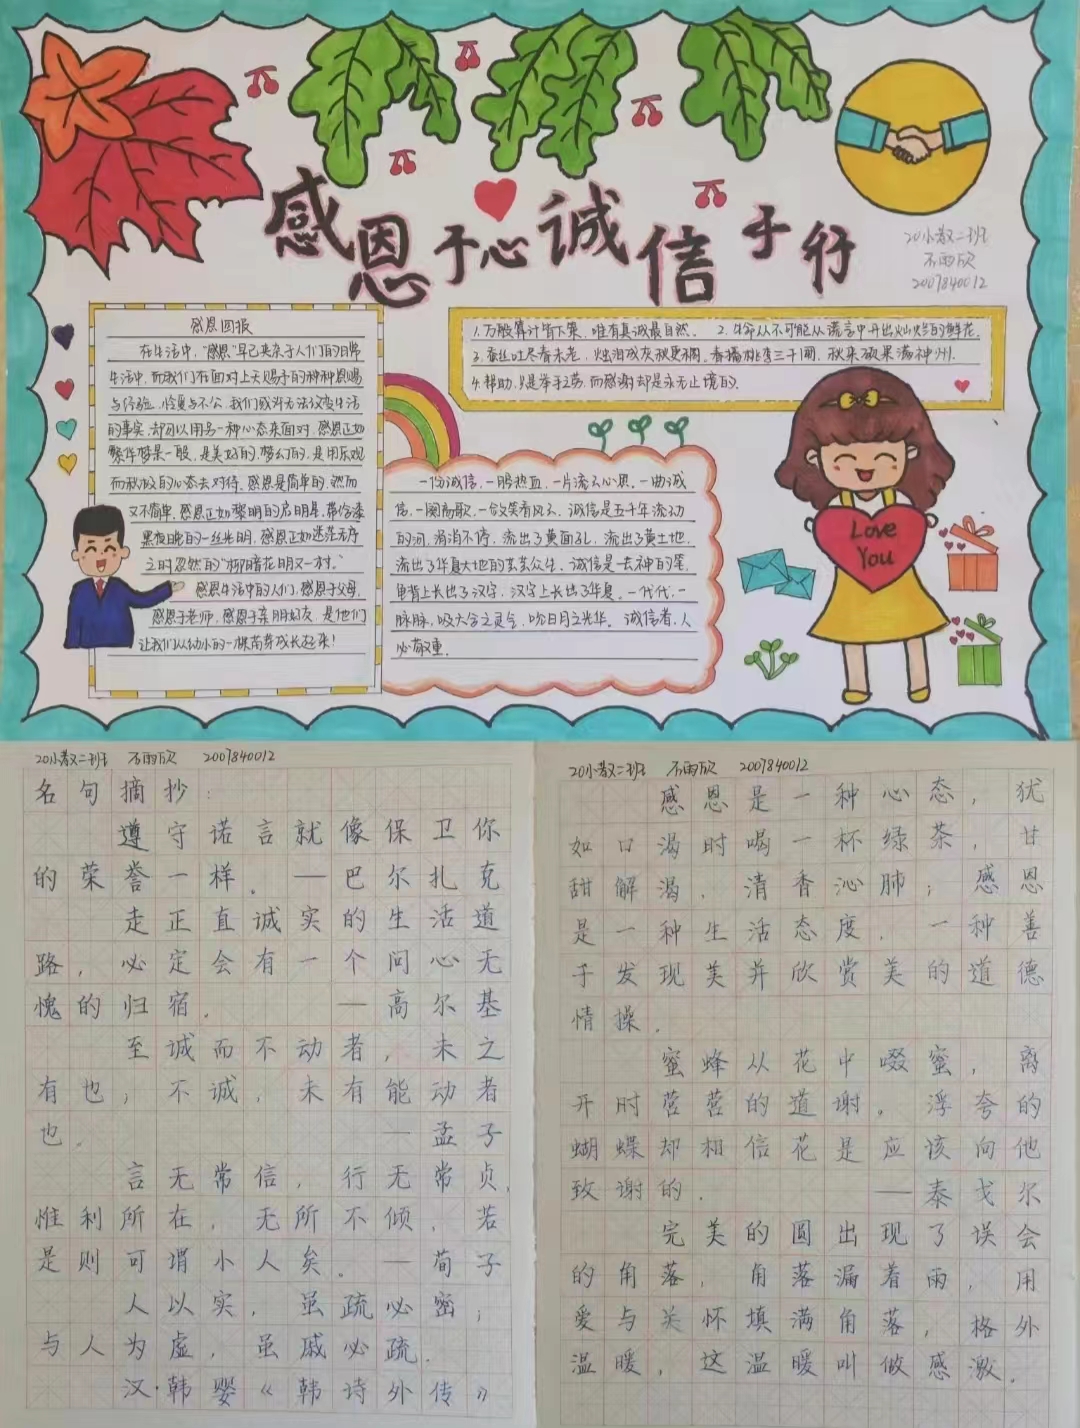 感恩于心 诚信于行
20小教二班
不雨欣
2007840012
感恩回报
在生活中,“感恩”早已夹杂于人们的日常
生活中,而我们在面对上天赐予的种种恩赐
与经验,怜爱与不公,我们或许无法改变生活
的事实,却可以用另一种心态来面对,感恩正如
繁华梦景一般,是美好的,梦幻的,是用乐观
而积极的心态去对待。感恩是简单的,然而
又不简单,感恩正如黎明的启明星,带给漆
黑夜晚的一丝光明,感恩正如迷茫无序
之时忽然的“柳暗花明又一村”。
感恩生活中的人们,感恩于父母,
感恩于老师,感恩于亲朋好友,是他们
让我们从幼小的一棵苗芽成长起来!
1.万般算计皆下策,唯有真诚最自然。 2.生命从不可能从谎言中开出灿烂的鲜花。
3.蚕丝吐尽春未老,烛泪成灰秋更稠。春播桃李三千圃,秋来硕果满神州。
4.帮助,只是举手之劳,而感谢却是永无止境的。
一份诚信,一腔热血,一片流云心思。一曲诚
信,一阕高歌,一台笑看风云。诚信是五千年流动
的河,涓涓不停,流出了黄面孔,流出了黄土地,
流出了华夏大地的芸芸众生。诚信是一去神的蛋,
龟背上长出了汉字,汉字上长出了华夏。一代代,一
脉脉,吸天台之灵气,吮日月之光华。诚信者,人
必敬重。
Love
You
20小教二班 不雨欣 2007840012
名句摘抄:
遵守诺言就像保卫你
的荣誉一样。—巴尔扎克
走正直诚实的生活道
路,必定会有一个问心无
愧的归宿。 —高尔基
至诚而不动者,未之
有也;不诚,未有能动者
也。 —孟子
言无常信,行无常贞,
惟利所在,无所不倾,若
是则可谓小人矣。—荀子
人以实,虽疏必密;
与人为虚,虽戚必疏。
汉·韩婴《韩诗外传》
20小教二班 不雨欣 2007840012
感恩是一种心态,犹
如口渴时喝一杯绿茶,甘
甜解渴,清香沁肺;感恩
是一种生活态度,一种善
于发现美并欣赏美的道德
情操。
蜜蜂从花中啜蜜,离
开时营营的道谢。浮夸的
蝴蝶却相信花是应该向他
致谢的。 —泰戈尔
完美的圆出现了误会
的角落,角落漏着雨,用
爱与关怀填满角落,格外
温暖,这温暖叫做感激。